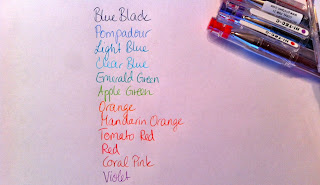 Blue Black
Pompadour
Light Blue
Clear Blue
Emerald Green
Apple Green
Orange
Mandarin Orange
Tomato Red
Red
Coral Pink
Violet